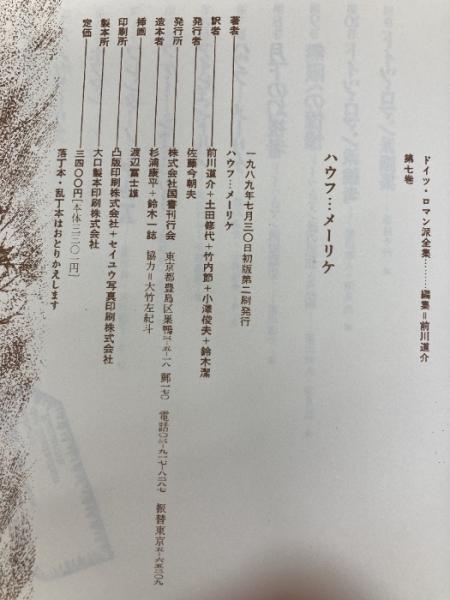 ドイツ・ロマン派全集………編集＝前川道介
第七巻
ハウフ…メーリケ
一九八九年七月三〇日初版第二刷発行
著者――ハウフ…メーリケ
訳者――前川道介＋土田修代＋竹内節＋小澤俊夫＋鈴木潔
発行者――佐藤今朝夫
発行所――株式会社国書刊行会　東京都豊島区巣鴨三‐五‐一八　郵一七〇　電話〇三‐九一七‐八二八七　振替東京五‐六五二〇九
造本者――杉浦康平＋鈴木一誌　協力＝大竹左紀斗
挿画――渡辺冨士雄
印刷所――凸版印刷株式会社＋セイユウ写真印刷株式会社
製本所――大口製本印刷株式会社
定価――三四〇〇円［本体三三〇一円］
落丁本・乱丁本はおとりかえします